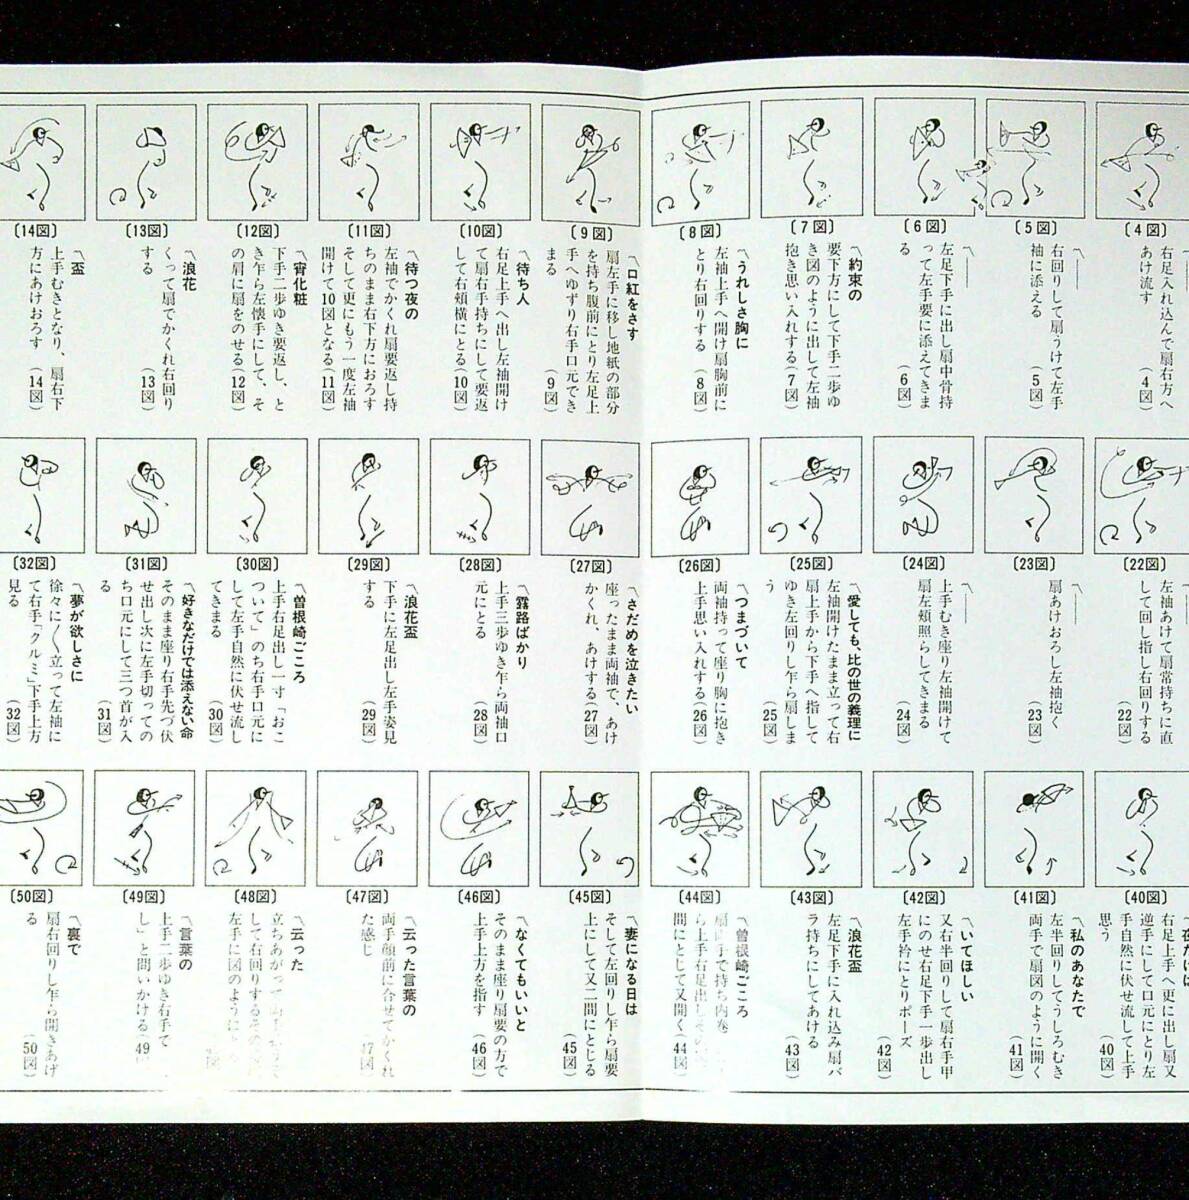 〔4図〕
〽――
右足入れ込んで扇右方へ
あけ流す
(4図)
〔5図〕
〽――
右回りして扇うけて左手
袖に添える
(5図)
〔6図〕
〽――
左足下手に出し扇中骨持
って左手要に添えてきま
る
(6図)
〔7図〕
〽約束の
要下方にして下手二歩ゆ
き図のように出して左袖
抱き思い入れする(7図)
〔8図〕
〽うれしさ胸に
左袖上手へ開け扇胸前に
とり右回りする
(8図)
〔9図〕
〽口紅をさす
扇左手に移し地紙の部分
を持ち腹前にとり左足上
手へゆずり右手口元でき
まる
(9図)
〔10図〕
〽待ち人
右足上手へ出し左袖開け
て扇右手持ちにして要返
して右頬横にとる(10図)
〔11図〕
〽待つ夜の
左袖でかくれ扇要返し持
ちのまま右下方におろす
そして更にもう一度左袖
開けて10図となる(11図)
〔12図〕
〽宵化粧
下手二歩ゆき要返し、と
き乍ら左懐手にして、そ
の肩に扇をのせる(12図)
〔13図〕
〽浪花
くって扇でかくれ右回り
する
(13図)
〔14図〕
〽盃
上手むきとなり、扇右下
方にあけおろす
(14図)
〔22図〕
〽――
左袖あけて扇常持ちに直
して回し指し右回りする
(22図)
〔23図〕
〽――
扇あけおろし左袖抱く
(23図)
〔24図〕
〽――
上手むき座り左袖開けて
扇左頬照らしてきまる
(24図)
〔25図〕
〽愛しても、比の世の義理に
左袖開けたまま立って右
扇上手から下手へ指して
ゆき左回りし乍ら扇しま
う
(25図)
〔26図〕
〽つまづいて
両袖持って座り胸に抱き
上手思い入れする(26図)
〔27図〕
〽さだめを泣きたい
座ったまま両袖で、あけ
かくれ、あけする(27図)
〔28図〕
〽露路ばかり
上手三歩ゆき乍ら両袖口
元にとる
(28図)
〔29図〕
〽浪花盃
下手に左足出し左手姿見
する
(29図)
〔30図〕
〽曽根崎ごころ
上手右足出し一寸「おこ
ついて」のち右手口元に
して左手自然に伏せ流し
てきまる
(30図)
〔31図〕
〽好きなだけでは添えない命
そのまま座り右手先づ伏
せ出し次に左手切っての
ち口元にして三つ首が入
る
(31図)
〔32図〕
〽夢が欲しさに
徐々に〱立って左袖に
て右手「クルミ」下手上方
見る
(32図)
〔40図〕
右足上手へ更に出し扇又
逆手にして口元にとり左
手自然に伏せ流して上手
思う
(40図)
〔41図〕
〽私のあなたで
左半回りしてうしろむき
両手で扇図のように開く
(41図)
〔42図〕
〽いてほしい
又右半回りして扇右手甲
にのせ右足下手一歩出し
左手衿にとりポーズ
(42図)
〔43図〕
〽浪花盃
左足下手に入れ込み扇バ
ラ持ちにしてあける
(43図)
〔44図〕
〽曽根崎ごころ
手で持ち内巻
ら上手右足出し
間にとして又開く(44図)
〔45図〕
〽妻になる日は
そして左回りし乍ら扇要
上にして又二間にとじる
(45図)
〔46図〕
〽なくてもいいと
そのまま座り扇要の方で
上手上方を指す
(46図)
〔47図〕
〽云った言葉の
両手顔前に合せてかくれ
た感じ
(47図)
〔48図〕
〽云った
立ちあがって
して右回りする
左手に図のように
〔49図〕
〽言葉の
上手二歩ゆき右手で
し」と問いかける(49
〔50図〕
〽裏で
扇右回りし乍ら開きあげ
る
(50図)